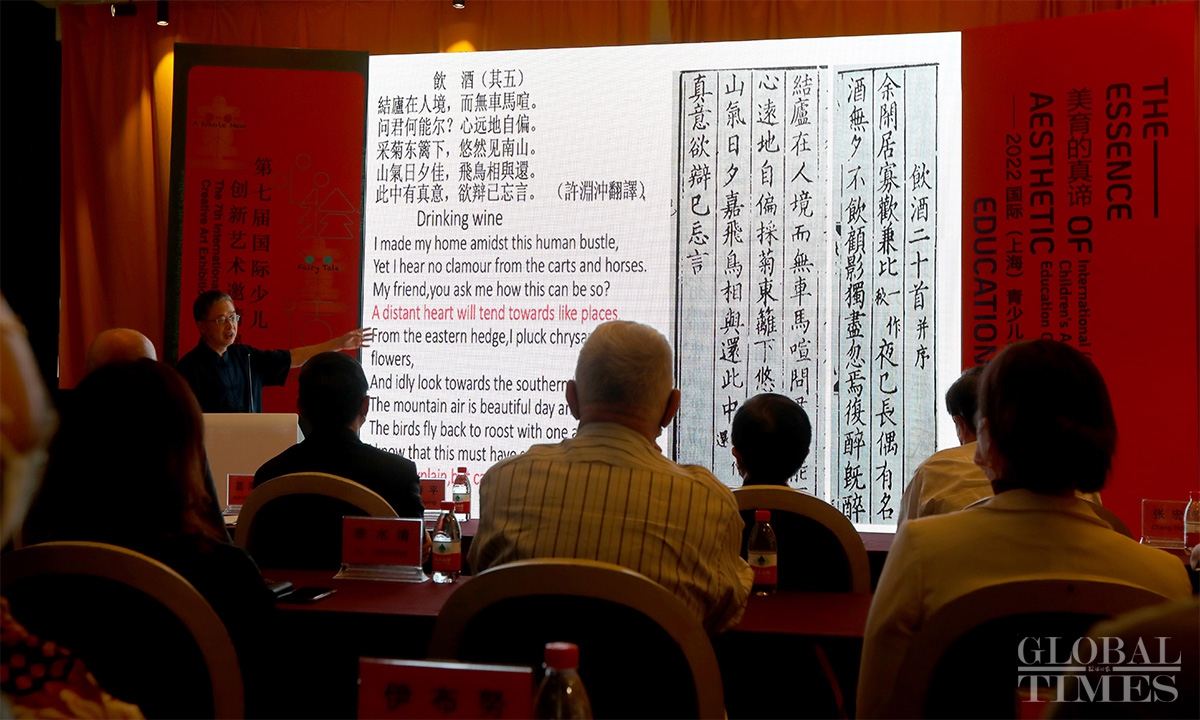 A Whole Tale
第七届国际少儿
创新艺术邀
The 7th International
Creative Art Exhibiti
Fairy Tale
飲 酒（其五）
結廬在人境，而無車馬喧。
问君何能尔？心远地自偏。
采菊东篱下，悠然见南山。
山氣日夕佳，飛鳥相與還。
此中有真意，欲辯已忘言。 （許淵沖翻譯）
Drinking wine
I made my home amidst this human bustle,
Yet I hear no clamour from the carts and horses.
My friend,you ask me how this can be so?
A distant heart will tend towards like places.
From the eastern hedge,I pluck chrysa
flowers,
And idly look towards the southern
The mountain air is beautiful day an
The birds fly back to roost with one a
know that this must have
plain,
飲酒二十首 并序
余閑居寡歡兼比一作 夜已長偶有名
酒無夕不飲顧影獨盡忽焉復醉既醉
結廬在人境而無車馬喧問
心遠地自偏採菊東籬下悠
山氣日夕嘉飛鳥相與還此中
真意欲辯已忘言
THE
ESSENCE
OF
AESTHETIC
EDUCATION
美育的真谛
International
Children's A
Education C
2022 国际（上海）青少儿
李水清
伊布努
GLOBAL
TIMES